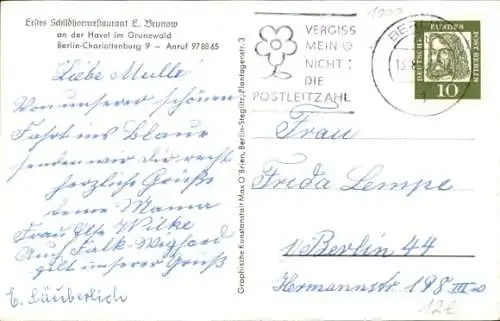 Erstes Schildhornrestaurant L. Brunow
an der Havel im Grunewald
Berlin-Charlottenburg 9 - Anruf 97 88 65
Liebe Mulle!
Von unserer schönen
Fahrt ins Blaue
senden wir dir recht
herzliche Grüße
deine Mama
Frau Else Wilke
Auch Falk-
gilt unserer Gruß
E. Säuberlich
Graphische Kunstanstalt Max O'Brien, Berlin-Steglitz, Plantagenstr. 3
1000
VERGISS
MEIN
NICHT
DIE
POSTLEITZAHL
BE
DEUTSCHE BUNDESPOST
10
Frau
Frieda Lempe
1 Berlin 44
Hermannstr. 198 III
12€